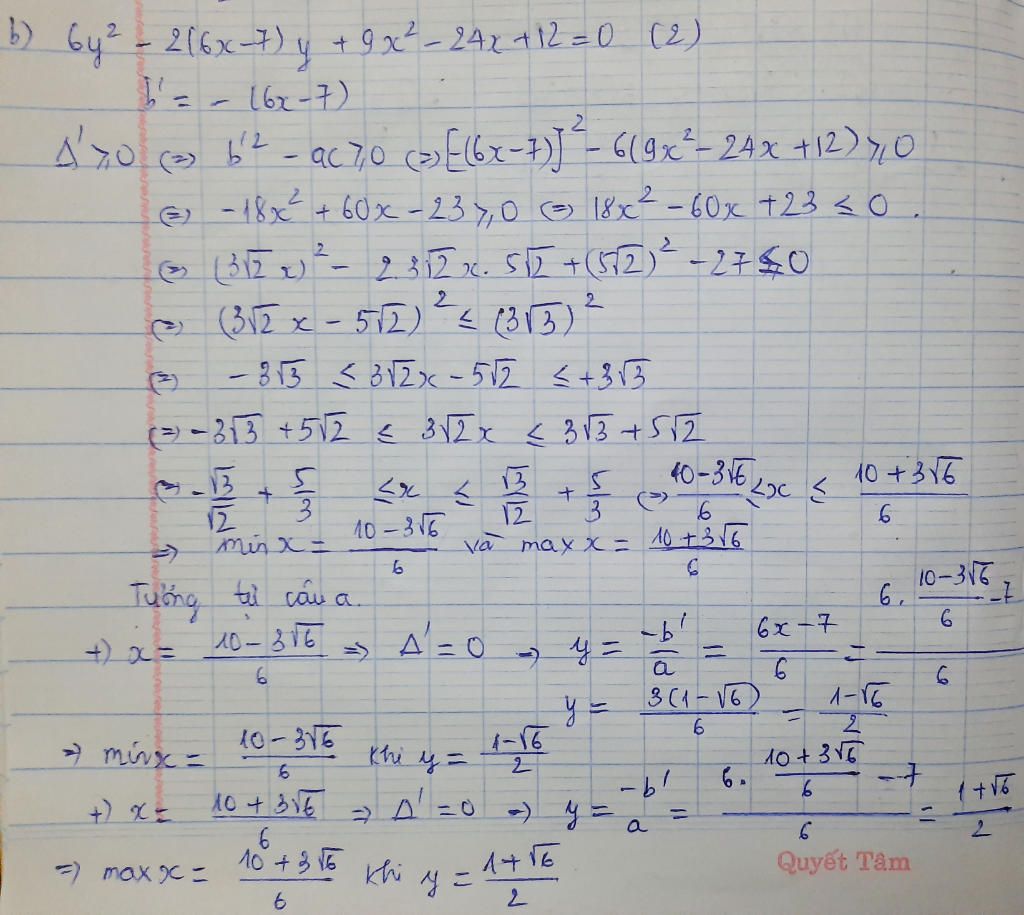 b) 6y² - 2(6x-7)y + 9x² - 24x + 12 = 0 (2)
b' = - (6x-7)
Δ' ≥ 0 (=) b'² - ac ≥ 0 (=) [-(6x-7)]² - 6(9x² - 24x + 12) ≥ 0
(=) -18x² + 60x - 23 ≥ 0 (=) 18x² - 60x + 23 ≤ 0.
(=) (3√2 x)² - 2.3√2 x. 5√2 + (5√2)² - 27 ≤ 0
(=) (3√2 x - 5√2)² ≤ (3√3)²
(=) -3√3 ≤ 3√2x - 5√2 ≤ +3√3
(=) -3√3 + 5√2 ≤ 3√2x ≤ 3√3 + 5√2
(=) -√3/√2 + 5/3 ≤ x ≤ √3/√2 + 5/3 (=) (10-3√6)/6 ≤ x ≤ (10+3√6)/6
=) min x = (10-3√6)/6 và max x = (10+3√6)/6
Tương tự câu a.
+) x = (10-3√6)/6 => Δ' = 0 => y = -b'/a = (6x-7)/6 = (6.(10-3√6)/6 -7)/6
y = 3(1-√6)/6 = (1-√6)/2
=) min x = (10-3√6)/6 khi y = (1-√6)/2
+) x = (10+3√6)/6 => Δ' = 0 => y = -b'/a = (6.(10+3√6)/6 -7)/6 = (1+√6)/2
=) max x = (10+3√6)/6 khi y = (1+√6)/2
Quyết Tâm